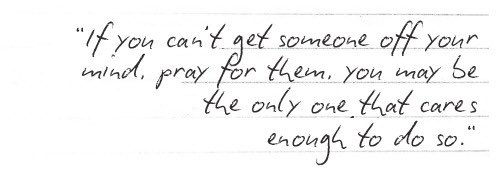 "If you can't get someone off your
mind, pray for them. you may be
the only one that cares
enough to do so."